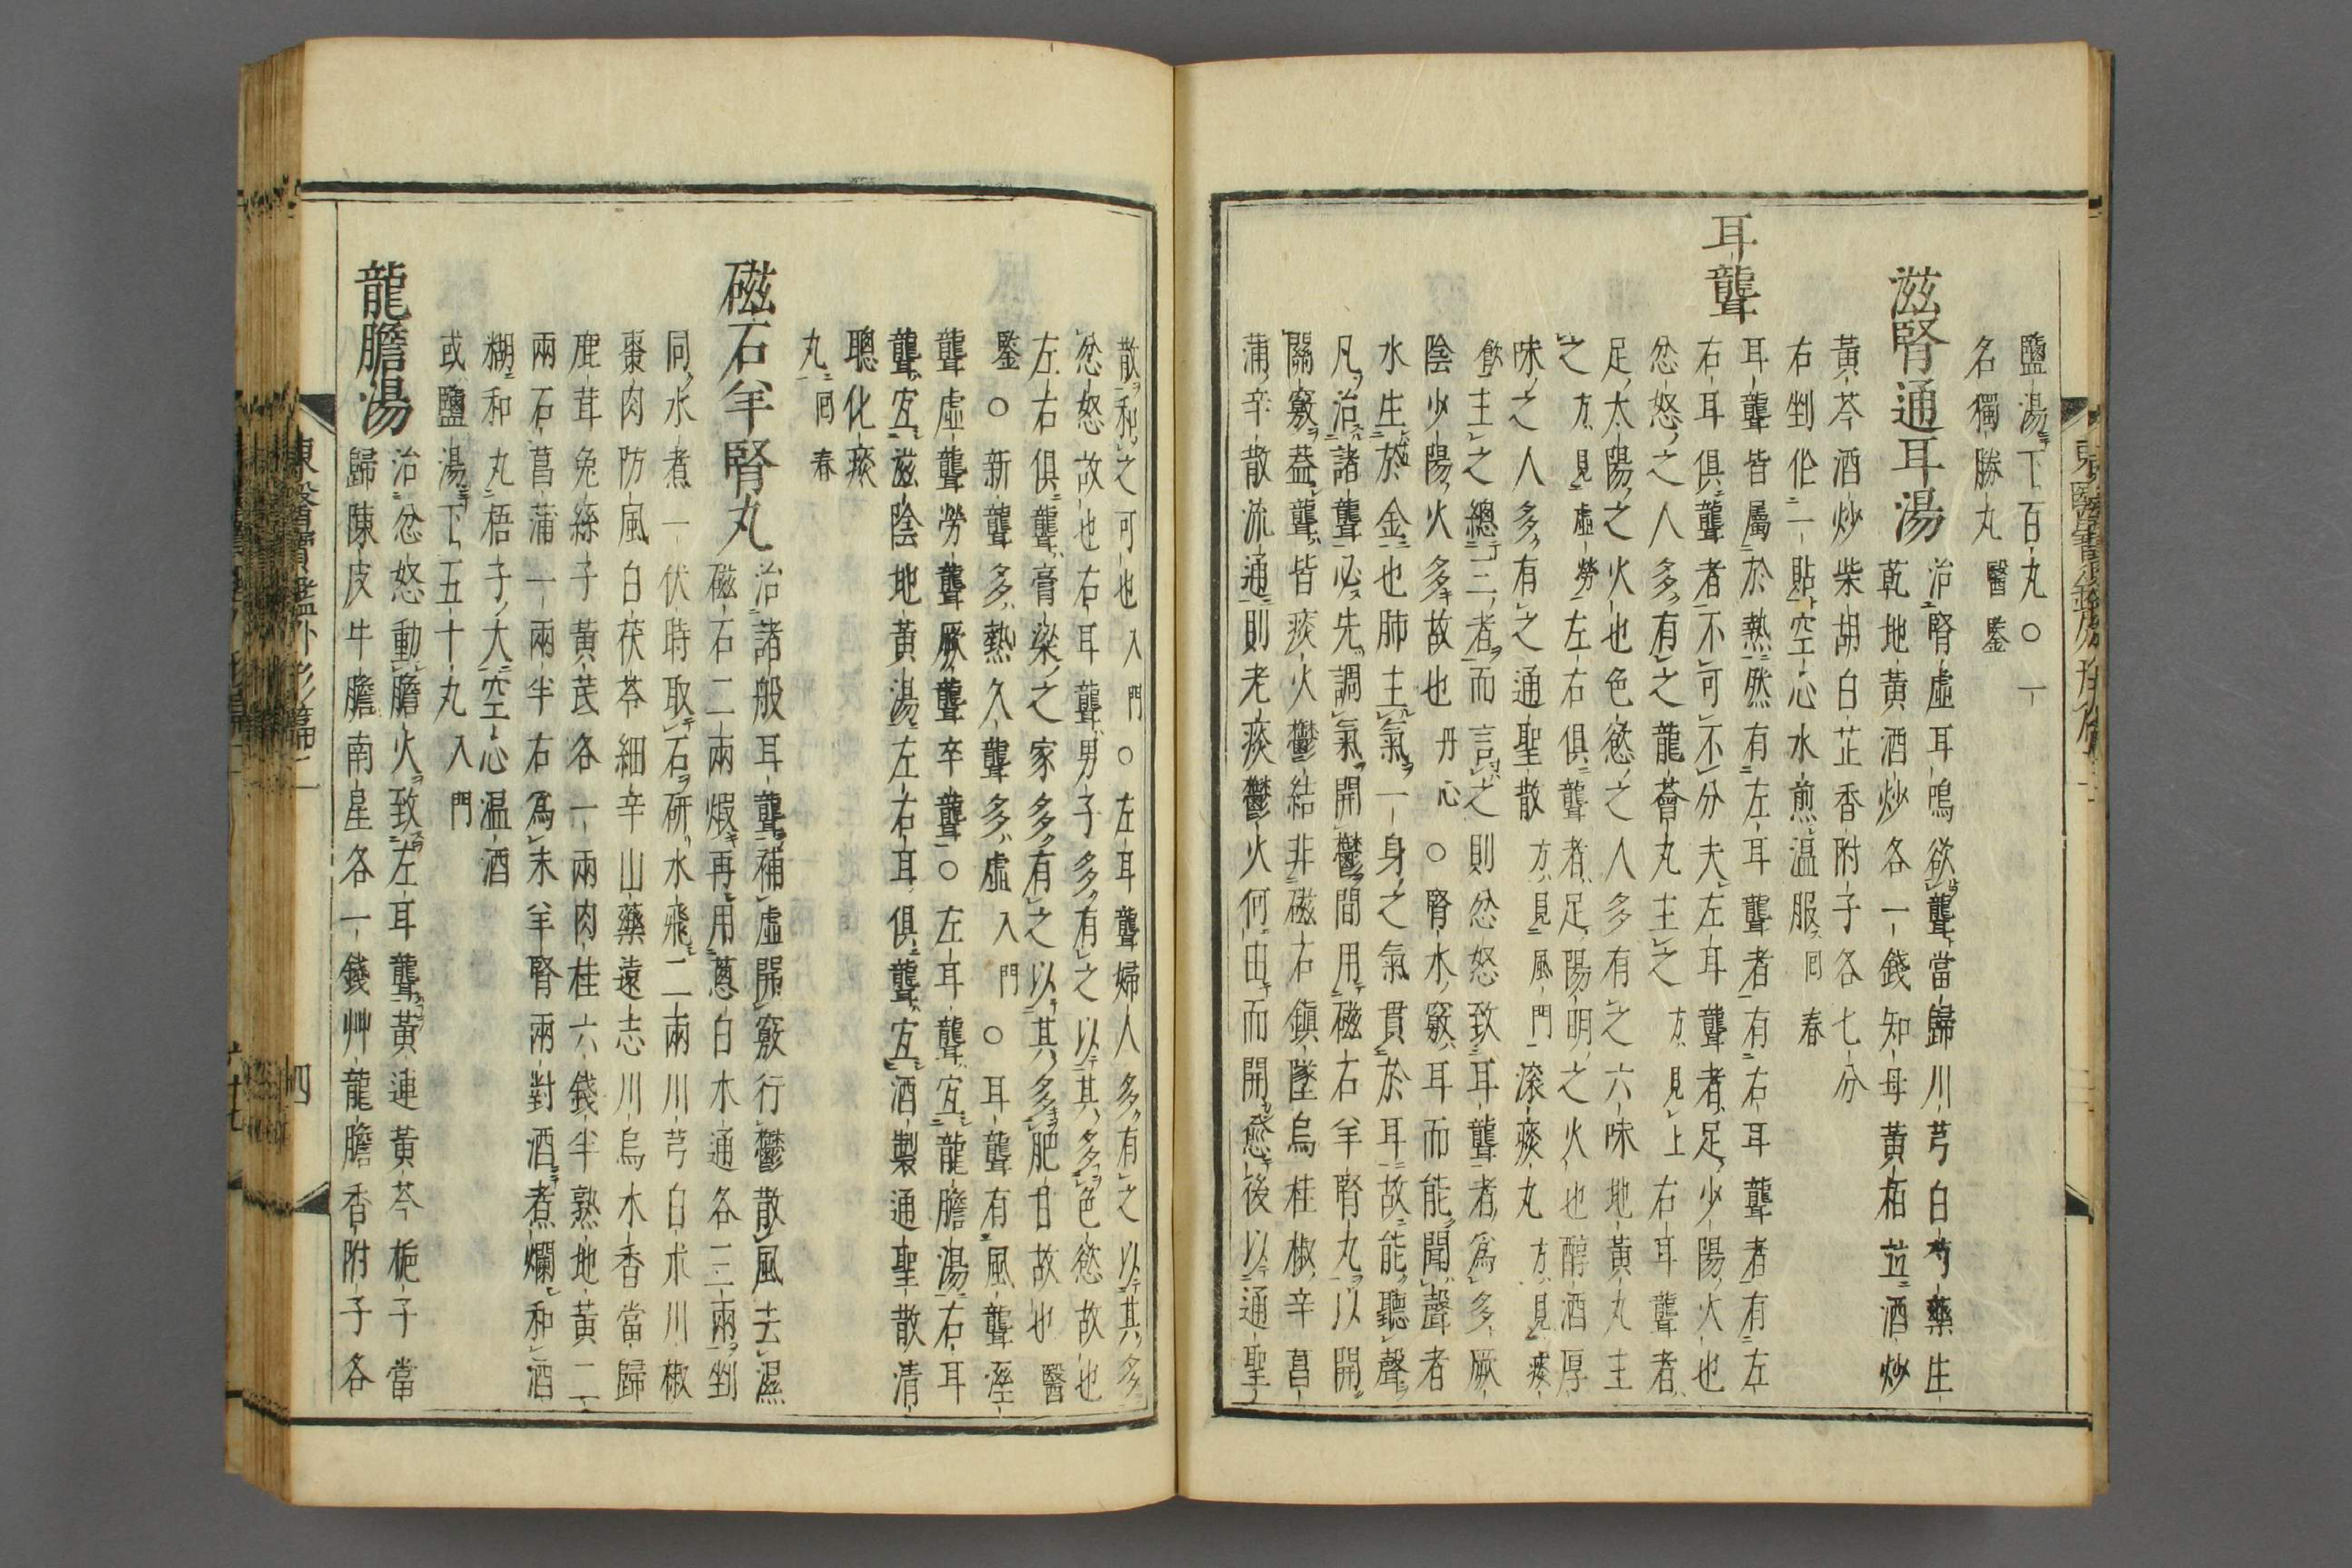 鹽湯下百丸○一
名獨勝丸 醫鑒
滋腎通耳湯 治腎虛耳鳴欲聾當歸川芎白芍藥生
乾地黃酒炒各一錢知母黃栢並酒炒
黃芩酒炒柴胡白芷香附子各七分
右剉作一貼空心水煎溫服 回春
耳聾
耳聾皆屬於熱然有左耳聾者有右耳聾者有左
右耳俱聾者不可不分夫左耳聾者足少陽火也
忿怒之人多有之龍薈丸主之 方見上 右耳聾者
足太陽之火也色慾之人多有之六味地黃丸主
之 方見虛勞 左右俱聾者足陽明之火也醇酒厚
味之人多有之通聖散 方見風門 滾痰丸 方見痰
飮 主之總三者而言之則忿怒致耳聾者爲多厥
陰少陽火多故也 丹心 ○腎水竅耳而能聞聲者
水生於金也肺主氣一身之氣貫於耳故能聽聲
凡治諸聾必先調氣開鬱間用磁石羊腎丸以開
關竅葢聾皆痰火鬱結非磁石鎭墜烏桂椒辛菖
蒲辛散流通則老痰鬱火何由而開愈後以通聖
散和之可也 入門 ○左耳聾婦人多有之以其多
忿怒故也右耳聾男子多有之以其多色慾故也
左右俱聾膏粱之家多有之以其多肥甘故也 醫
鑒 ○新聾多熱久聾多虛 入門 ○耳聾有風聾溼
聾虛聾勞聾厥聾卒聾○左耳聾宜龍膽湯右耳
聾宜滋陰地黃湯左右耳俱聾宜酒製通聖散淸
聰化痰
丸 回春
磁石羊腎丸 治諸般耳聾補虛開竅行鬱散風去濕
磁石二兩煆再用蔥白木通各三兩剉
同水煮一伏時取石硏水飛二兩川芎白朮川椒
棗肉防風白茯苓細辛山藥遠志川烏木香當歸
鹿茸兔絲子黃芪各一兩肉桂六錢半熟地黃二
兩石菖蒲一兩半右爲末羊腎兩對酒煮爛和酒
糊和丸梧子大空心溫酒
或鹽湯下五十丸 入門
龍膽湯 治忿怒動膽火致左耳聾黃連黃芩梔子當
歸陳皮牛膽南星各一錢艸龍膽香附子各
東醫寶鑑外形篇二
四